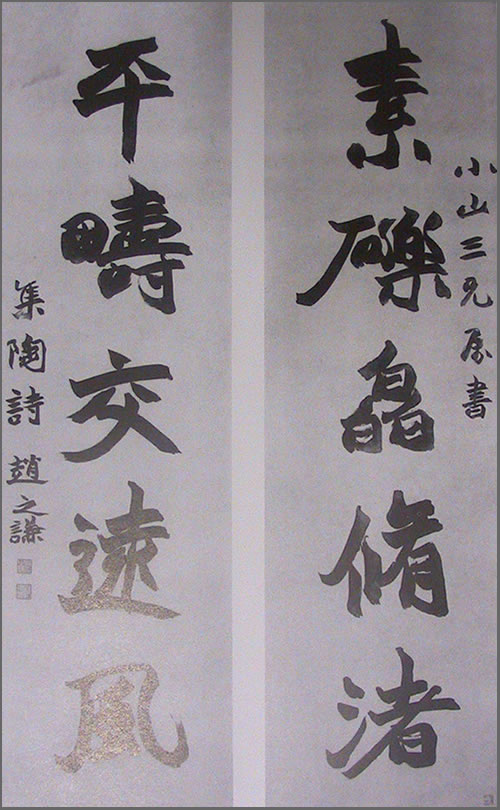 小山三兄属書
素礫皛脩渚
平疇交遠風
集陶詩 趙之謙